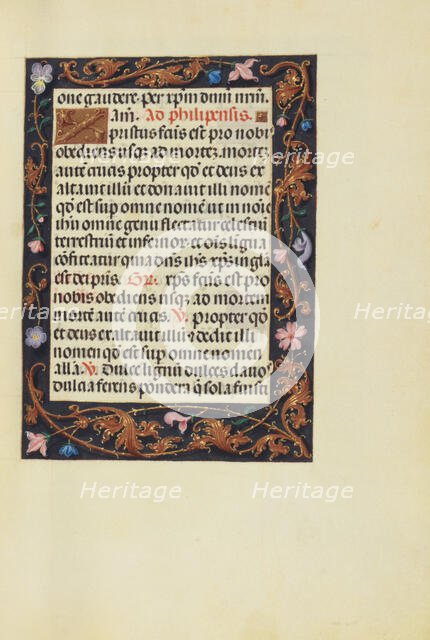 one gaudere. per xp̄m dn̄m nr̄m.
Am̄. Ad philipensis.
Xp̄istus fc̄us est pro nobi
obediens usqz ad morteʒ. morteʒ
autē crucis propter qd̄ et deus ex
altauit illū et donauit illi nomē
qd̄ est sup omne nomē ut in noīe
ihū omne genu flectatur celestiū
terrestriū et infernor et oīs ligua
cōfiteatur quia dn̄s ihs xp̄s in gl̄a
est dei pr̄is. Gr̄. xp̄s fc̄us est pro
nobis obediens usqz ad mortem
mortē autē crucis. V̄. propter qd̄
et deus exaltauit illū et dedit illi
nomen qd̄ est sup omne nomen
alla. V̄. Dulce lignū dulces clauo
dulcia ferens pondera q̄ sola fuisti
Heritage
Heritage
Heritage
Heritage
Heritage
Heritage
Heritage